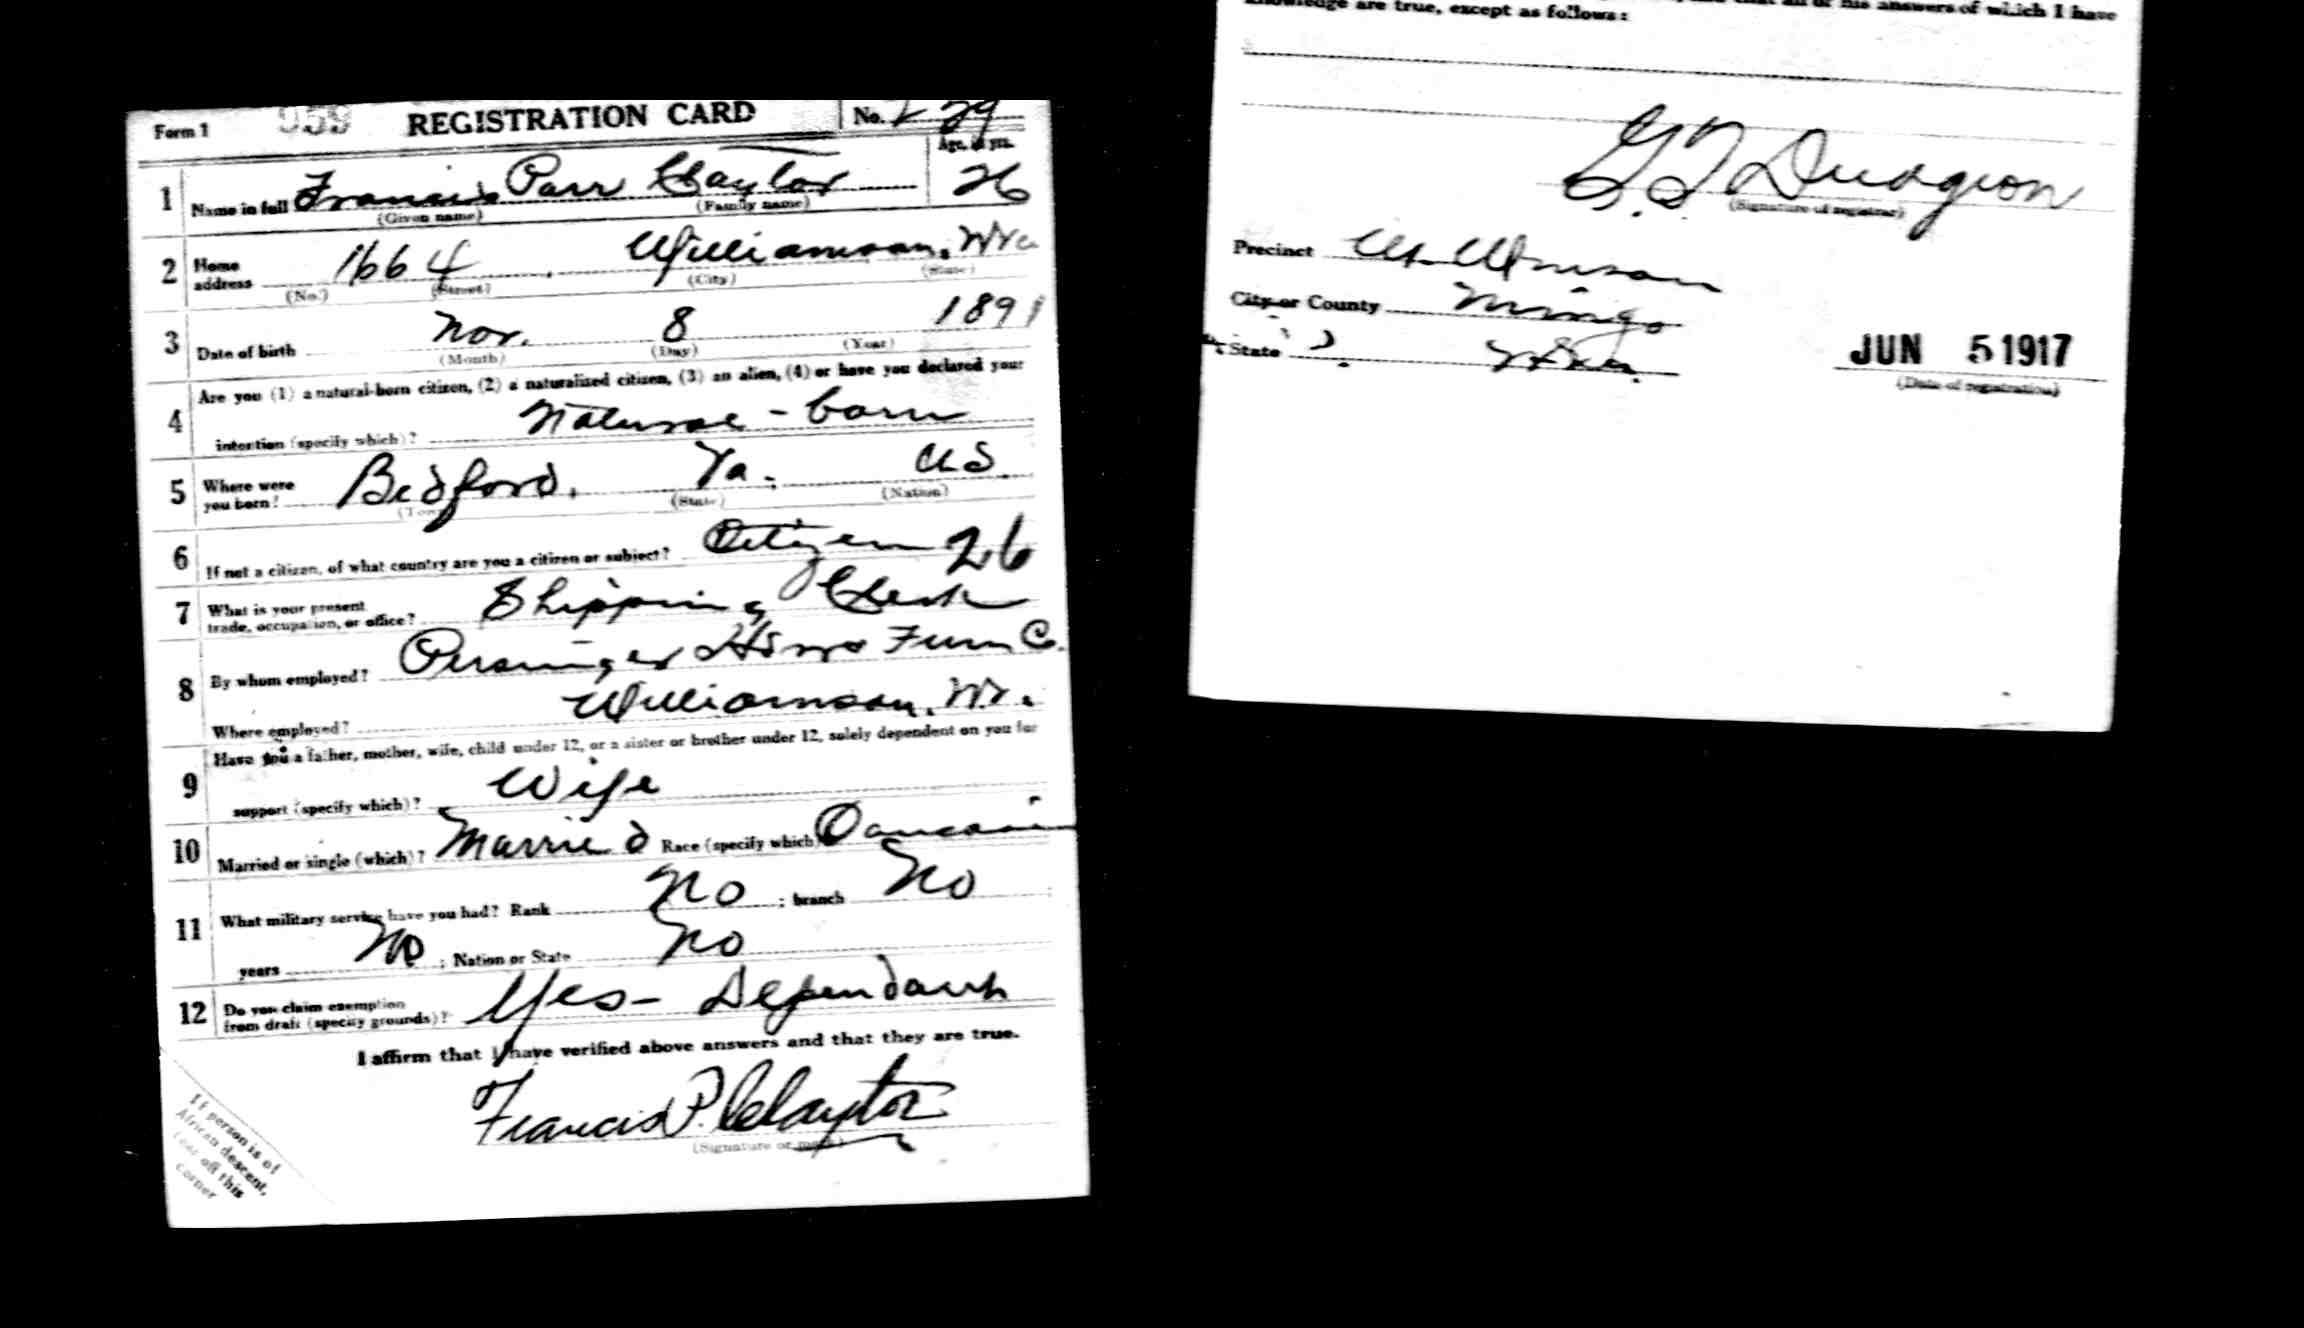 Form 1 959 REGISTRATION CARD No. 239
Age, in yrs.
1 Name in full Francis Parr Claytor 26
(Given name) (Family name)
2 Home address 1664 Williamson, W Va
(No.) (Street) (City) (State)
3 Date of birth Nov. 8 1891
(Month) (Day) (Year)
4 Are you (1) a natural-born citizen, (2) a naturalized citizen, (3) an alien, (4) or have you declared your
intention (specify which)? Natural-born
5 Where were you born? Bedford, Va. US
(Town) (State) (Nation)
6 If not a citizen, of what country are you a citizen or subject? Citizen 26
7 What is your present trade, occupation, or office? Shipping Clerk
8 By whom employed? Persinger Furn Co.
Where employed? Williamson, W.
9 Have you a father, mother, wife, child under 12, or a sister or brother under 12, solely dependent on you for
support (specify which)? Wife
10 Married or single (which)? Married Race (specify which)
11 What military service have you had? Rank No ; branch No
years No ; Nation or State No
12 Do you claim exemption from draft (specify grounds)? Yes- Dependant
I affirm that I have verified above answers and that they are true.
Francis P. Claytor
(Signature or mark)
If person is of
African descent,
tear off this
corner
answers of which I have
knowledge are true, except as follows:
G T Dudgeon
(Signature of registrar)
Precinct
City or County Mingo
State
JUN 5 1917
(Date of registration)